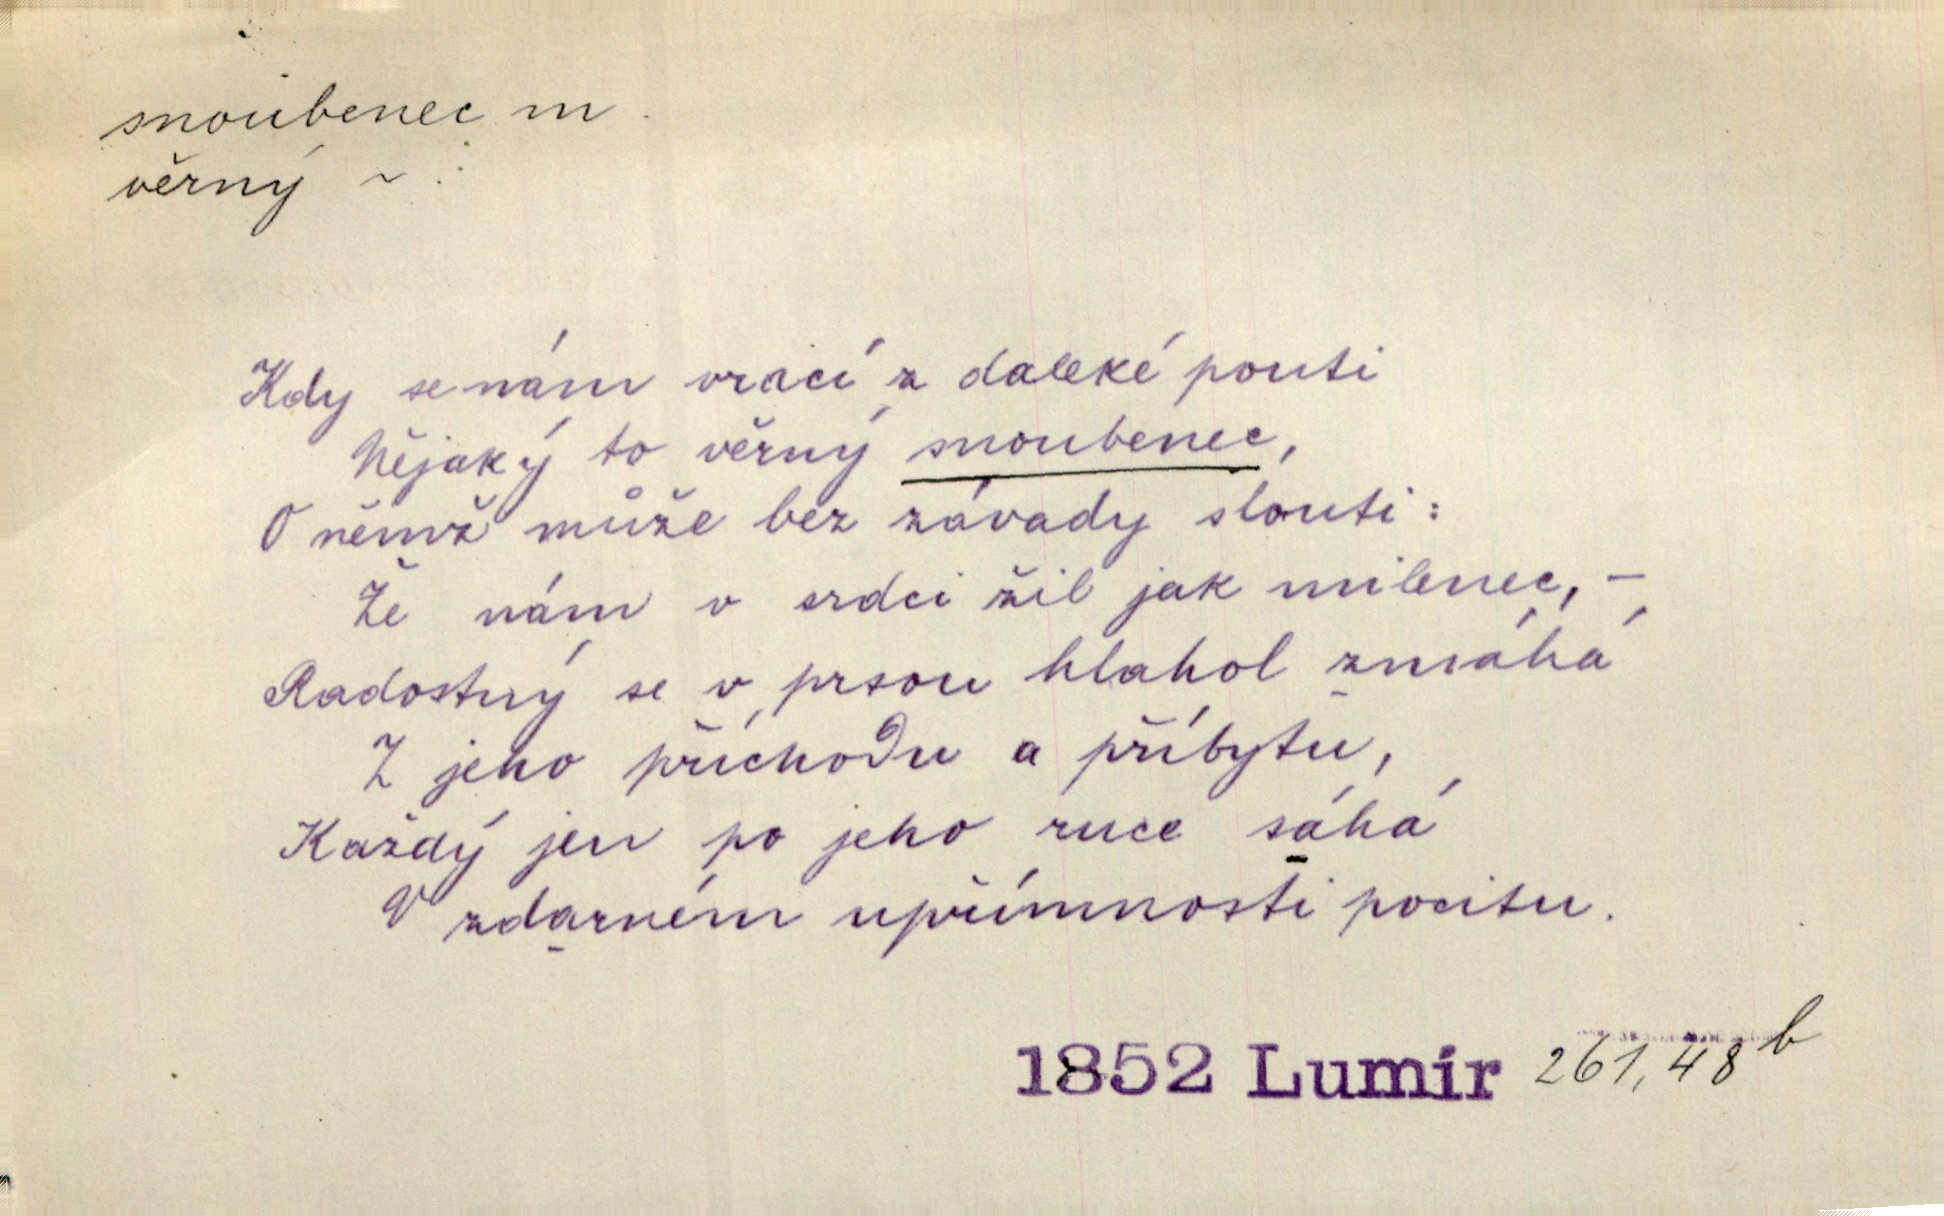 snoubenec m.
věrný ~ :
Kdy se nám vrácí z daleké pouti
Nějaký to věrný snoubenec,
O němž může bez závady slouti:
Že nám v srdci žil jak milenec, —
Radostný se v prsou hlahol zmáhá
Z jeho příchodu a příbytu,
Každý jen po jeho ruce sáhá
V zdarném upřímnosti pocitu.
1852 Lumír 261,48 b